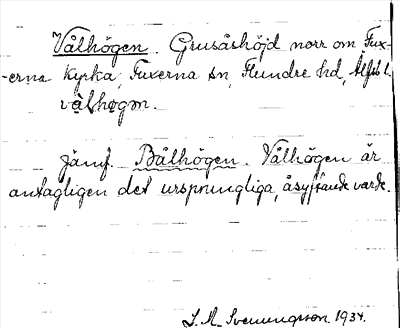 Vålhögen. Grusåshöjd norr om Fux-
-erna kyrka, Fuxerna sn, Flundre hd, Älfsb l.
vå̱lhøgən.
Jämf. Bålhögen. Vålhögen är
antagligen det ursprungliga, åsyftande varde.
1934.